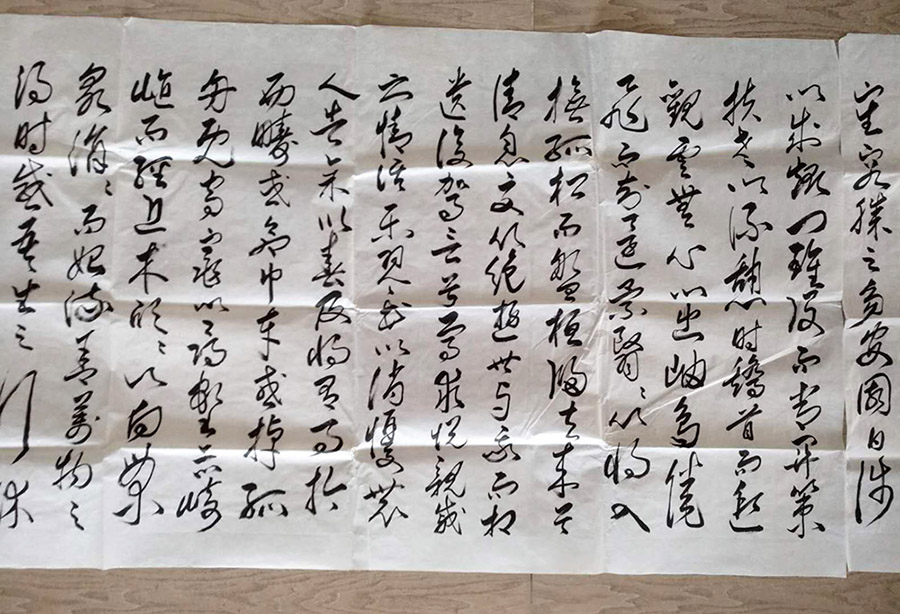 室容膝之易安園日涉
以成趣门雖設而常關策
扶老以流憩時矯首而遐
觀雲無心以出岫鳥倦
飛而知還景翳〻以將入
撫孤松而盤桓歸去來兮
請息交以絕遊世与我而相
遺復駕言兮焉求悅親戚
之情話樂琴書以消憂農
人告余以春及將有事於
西疇或命巾車或棹孤
舟既窈窕以尋壑亦崎
嶇而經丘木欣〻以向榮
泉涓〻而始流善萬物之
得時感吾生之行休